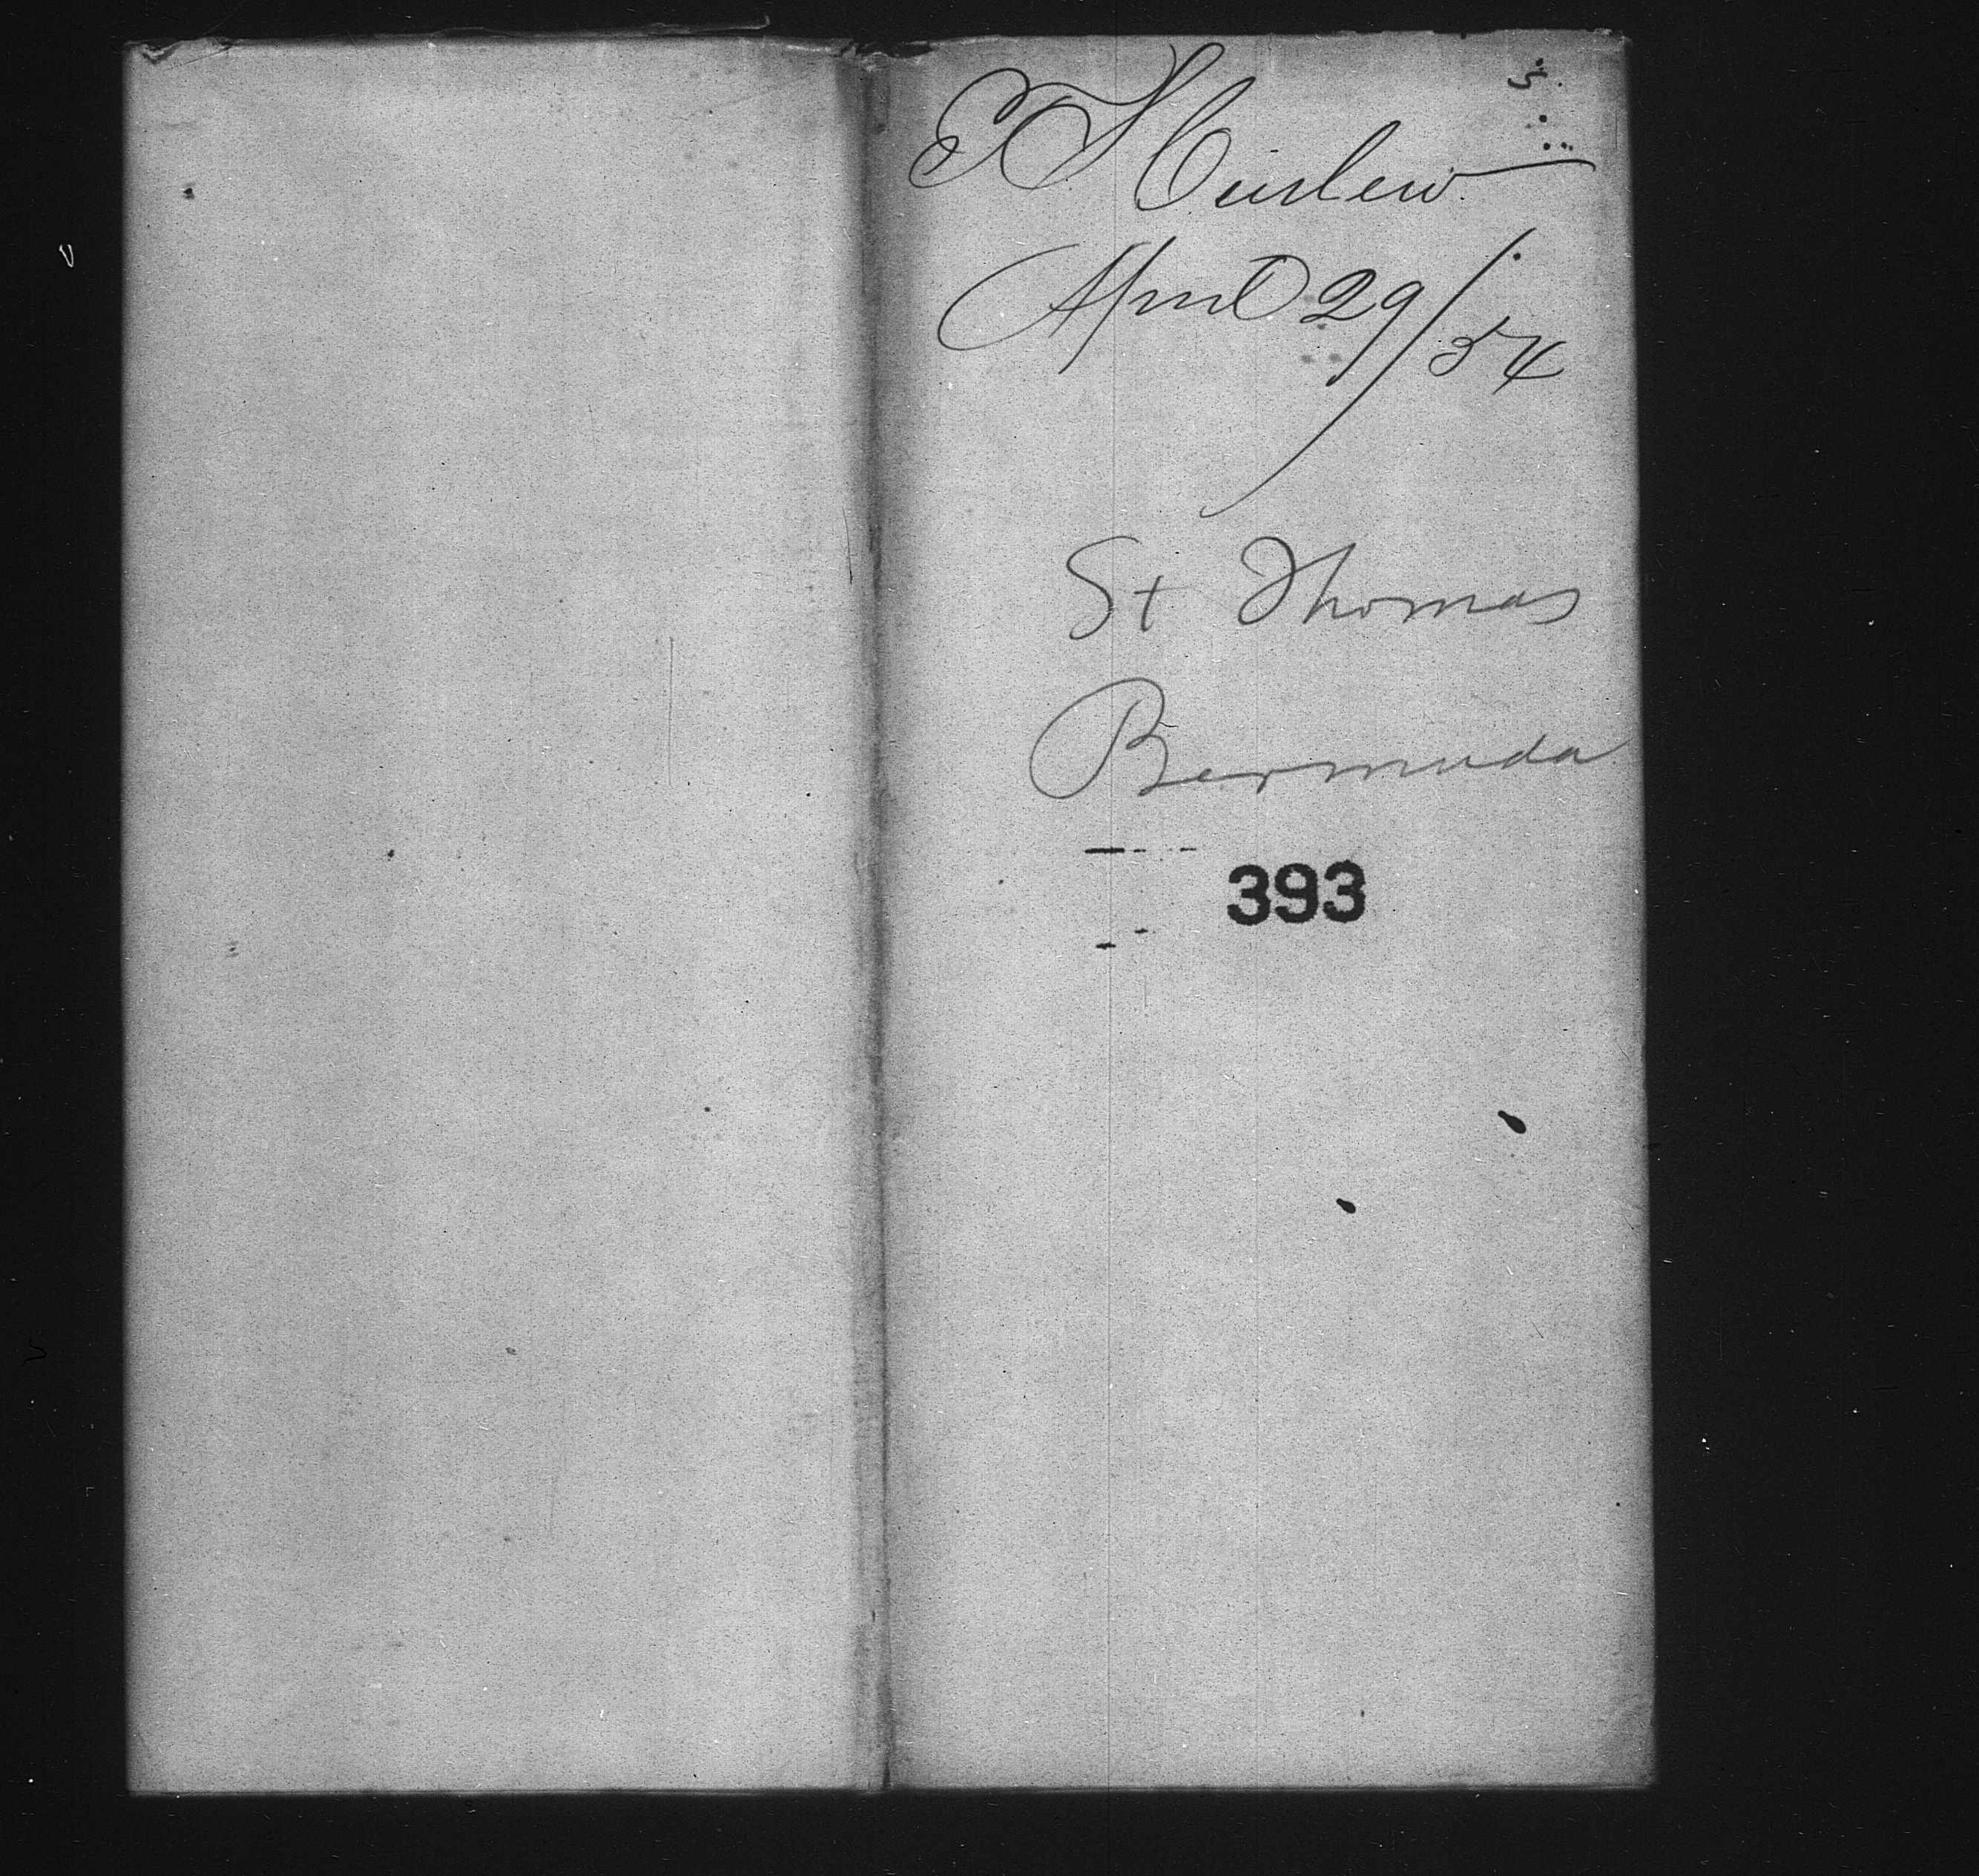 E S Curlew
April 29/54
St Thomas
Bermuda
393